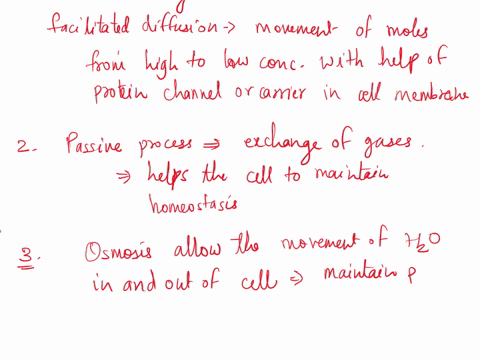 facilitated diffusion → movement of moles
from high to low conc. with help of
protein channel or carrier in cell membrane
2. Passive process ⇒ exchange of gases.
⇒ helps the cell to maintain
homeostasis
3. Osmosis allow the movement of H2O
in and out of cell ⇒ maintain p